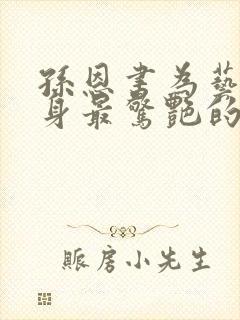 孫恩書為藝
身最驚艷的
賬房小先生